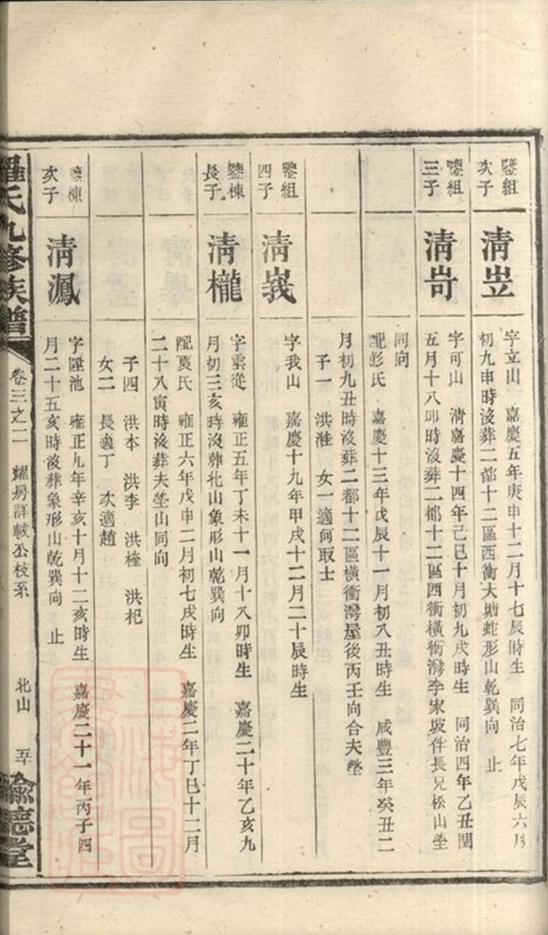 鑒組
次子
清岦
字立山 嘉慶五年庚申十二月十七辰時生 同治七年戊辰六月
初九申時沒葬二都十二區西衡大塘蛇形山乾巽向 止
鑒組
三子
清岢
字可山 清嘉慶十四年己巳十月初九戌時生 同治四年乙丑閏
五月十八卯時沒葬二都十二區西衝橫衝灣李家坡伴長兄松山塋
同向
配彭氏 嘉慶十三年戊辰十一月初八丑時生 咸豐三年癸丑二
月初九丑時沒葬二都十二區橫衝灣屋後丙壬向合夫塋
子一 洪淮 女一適何取士
鑒組
四子
清峩
字我山 嘉慶十九年甲戌十二月二十辰時生
鑒棟
長子
清櫳
字雲從 雍正五年丁未十一月十八卯時生 嘉慶二十年乙亥九
月初三亥時沒葬北山象形山乾巽向
配夏氏 雍正六年戊申二月初七戌時生 嘉慶二年丁巳十二月
二十八寅時沒葬夫塋山同向
子四 洪本 洪李 洪桂 洪杞
女二 長適丁 次適趙
鑒棟
次子
清鳳
字 池 雍正九年辛亥十月十二亥時生 嘉慶二十一年丙子四
月二十五亥時沒葬象形山乾巽向 止
羅氏九修族譜
卷三之二
耀房詳載公枝系
北山
五十
敘德堂